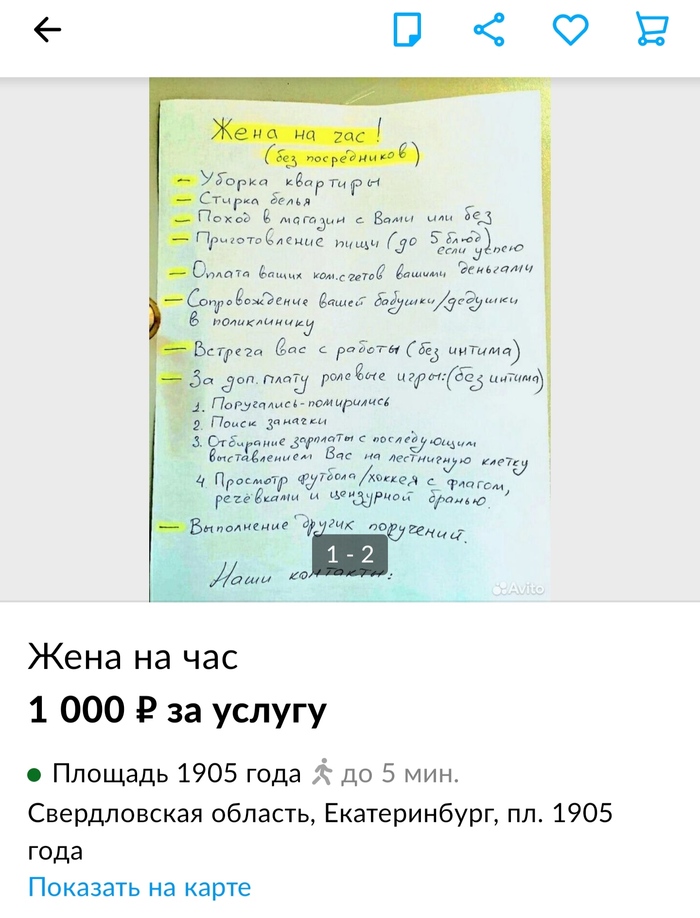 Жена на час!
(без посредников)
— Уборка квартиры
— Стирка белья
— Поход в магазин с Вами или без
— Приготовление пищи (до 5 блюд)
если успею
— Оплата ваших ком.счетов вашими деньгами
— Сопровождение вашей бабушки/дедушки
в поликлинику
— Встреча вас с работы (без интима)
— За доп. плату ролевые игры: (без интима)
1. Поругались-помирились
2. Поиск заначки
3. Отбирание зарплаты с последующим
выставлением Вас на лестничную клетку
4. Просмотр футбола/хоккея с флагом,
речёвками и цензурной бранью.
— Выполнение других поручений.
1 - 2
Наши контакты:
Avito
Жена на час
1 000 ₽ за услугу
Площадь 1905 года до 5 мин.
Свердловская область, Екатеринбург, пл. 1905
года
Показать на карте